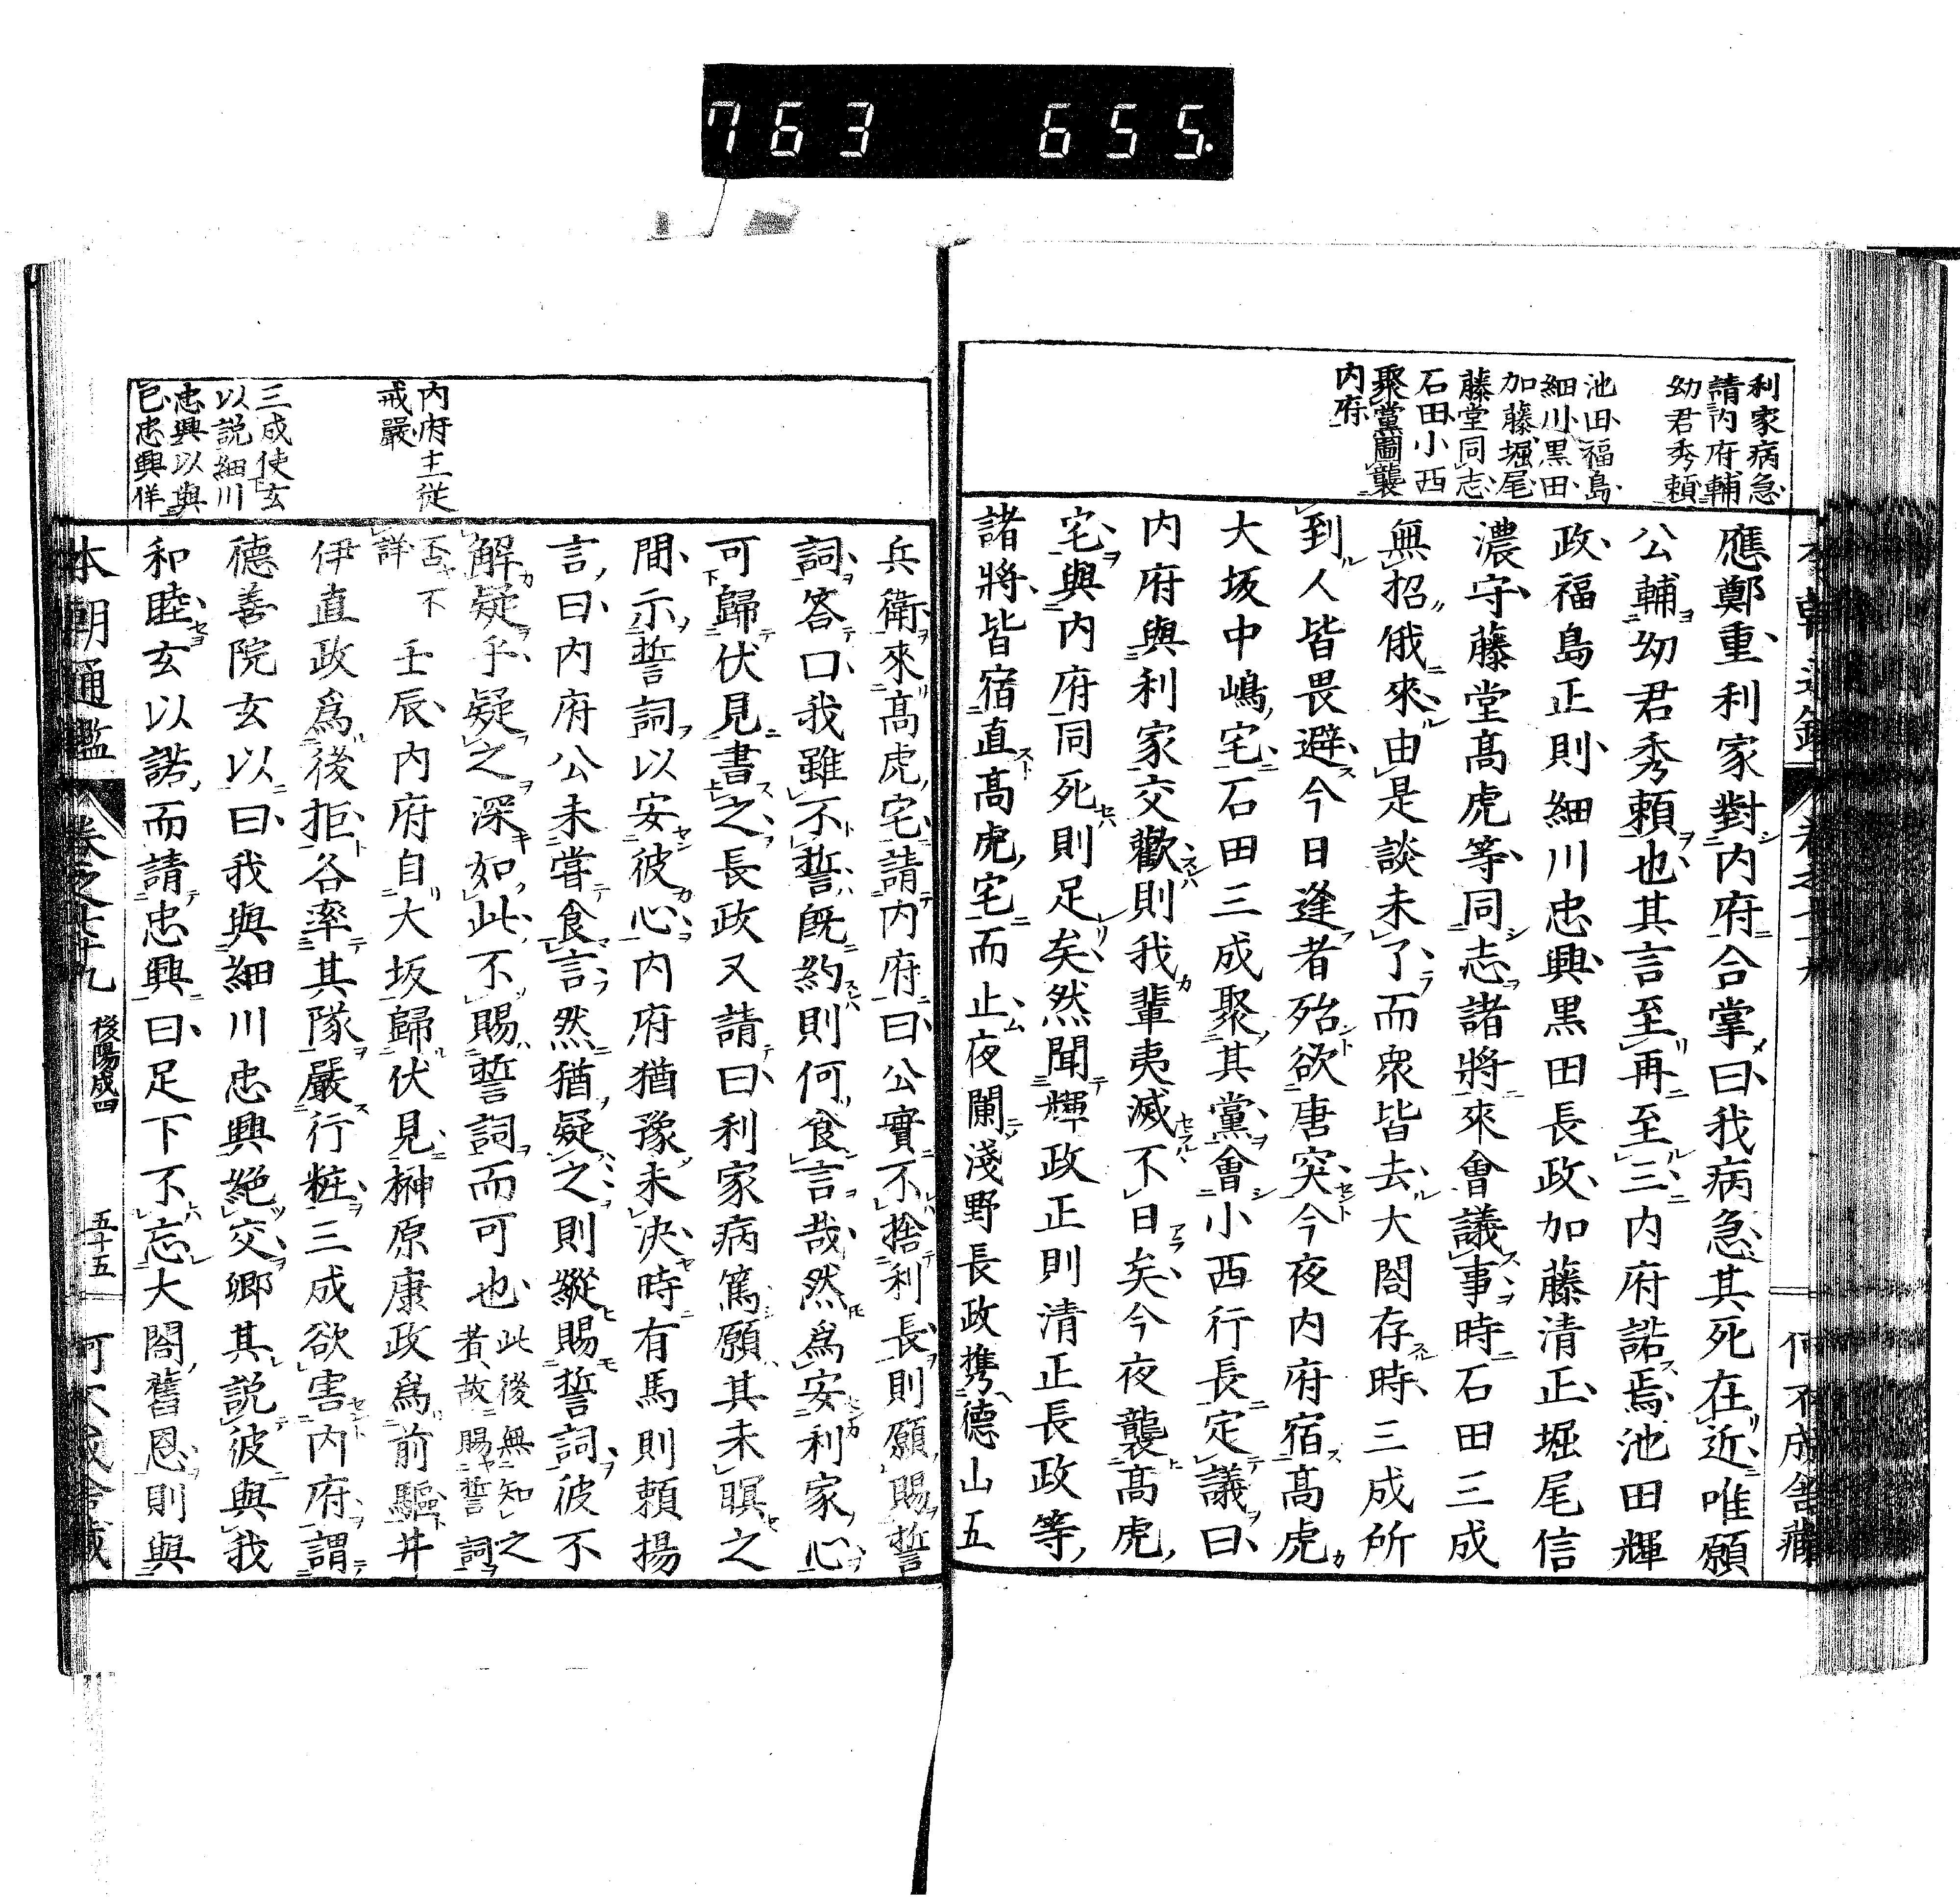 763 655.
利家病急
請內府輔
幼君秀頼
池田福島
細川黒田
加藤堀尾
藤堂同志
石田小西
聚黨圖襲
內府
應鄭重利家對內府合掌曰我病急其死在近唯願
公輔幼君秀頼也其言至再至三內府諾焉池田輝
政福島正則細川忠興黒田長政加藤清正堀尾信
濃守藤堂高虎等同志諸將來會議事時石田三成
無招俄來由是談未了而衆皆去大閤存時三成所
到人皆畏避今日逢者殆欲唐突今夜內府宿高虎
大坂中嶋宅石田三成聚其黨會小西行長定議曰
內府與利家交歡則我輩夷滅不日矣今夜襲高虎
宅與內府同死則足矣然聞輝政正則清正長政等
諸將皆宿直高虎宅而止夜闌淺野長政携德山五
內府主從
戒嚴
三成使玄
以説細川
忠興以與
已忠興佯
兵衛來高虎宅請內府曰公實不捨利長則願賜誓
詞答曰我雖不誓既約則何食言哉然為安利家心
可歸伏見書之長政又請曰利家病篤願其未瞑之
間示誓詞以安彼心內府猶豫未决時有馬則頼揚
言曰內府公未嘗食言然猶疑之則縱賜誓詞彼不
解疑乎疑之深如此不賜誓詞而可也此後無知之者故賜誓詞
否不詳壬辰內府自大坂歸伏見榊原康政爲前驅井
伊直政爲後拒各率其隊嚴行粧三成欲害內府謂
德善院玄以曰我與細川忠興絶交卿其説彼與我
和睦玄以諾而請忠興曰足下不忘大閤舊恩則與
本朝通鑑 卷之七十九 後陽成四 五十五